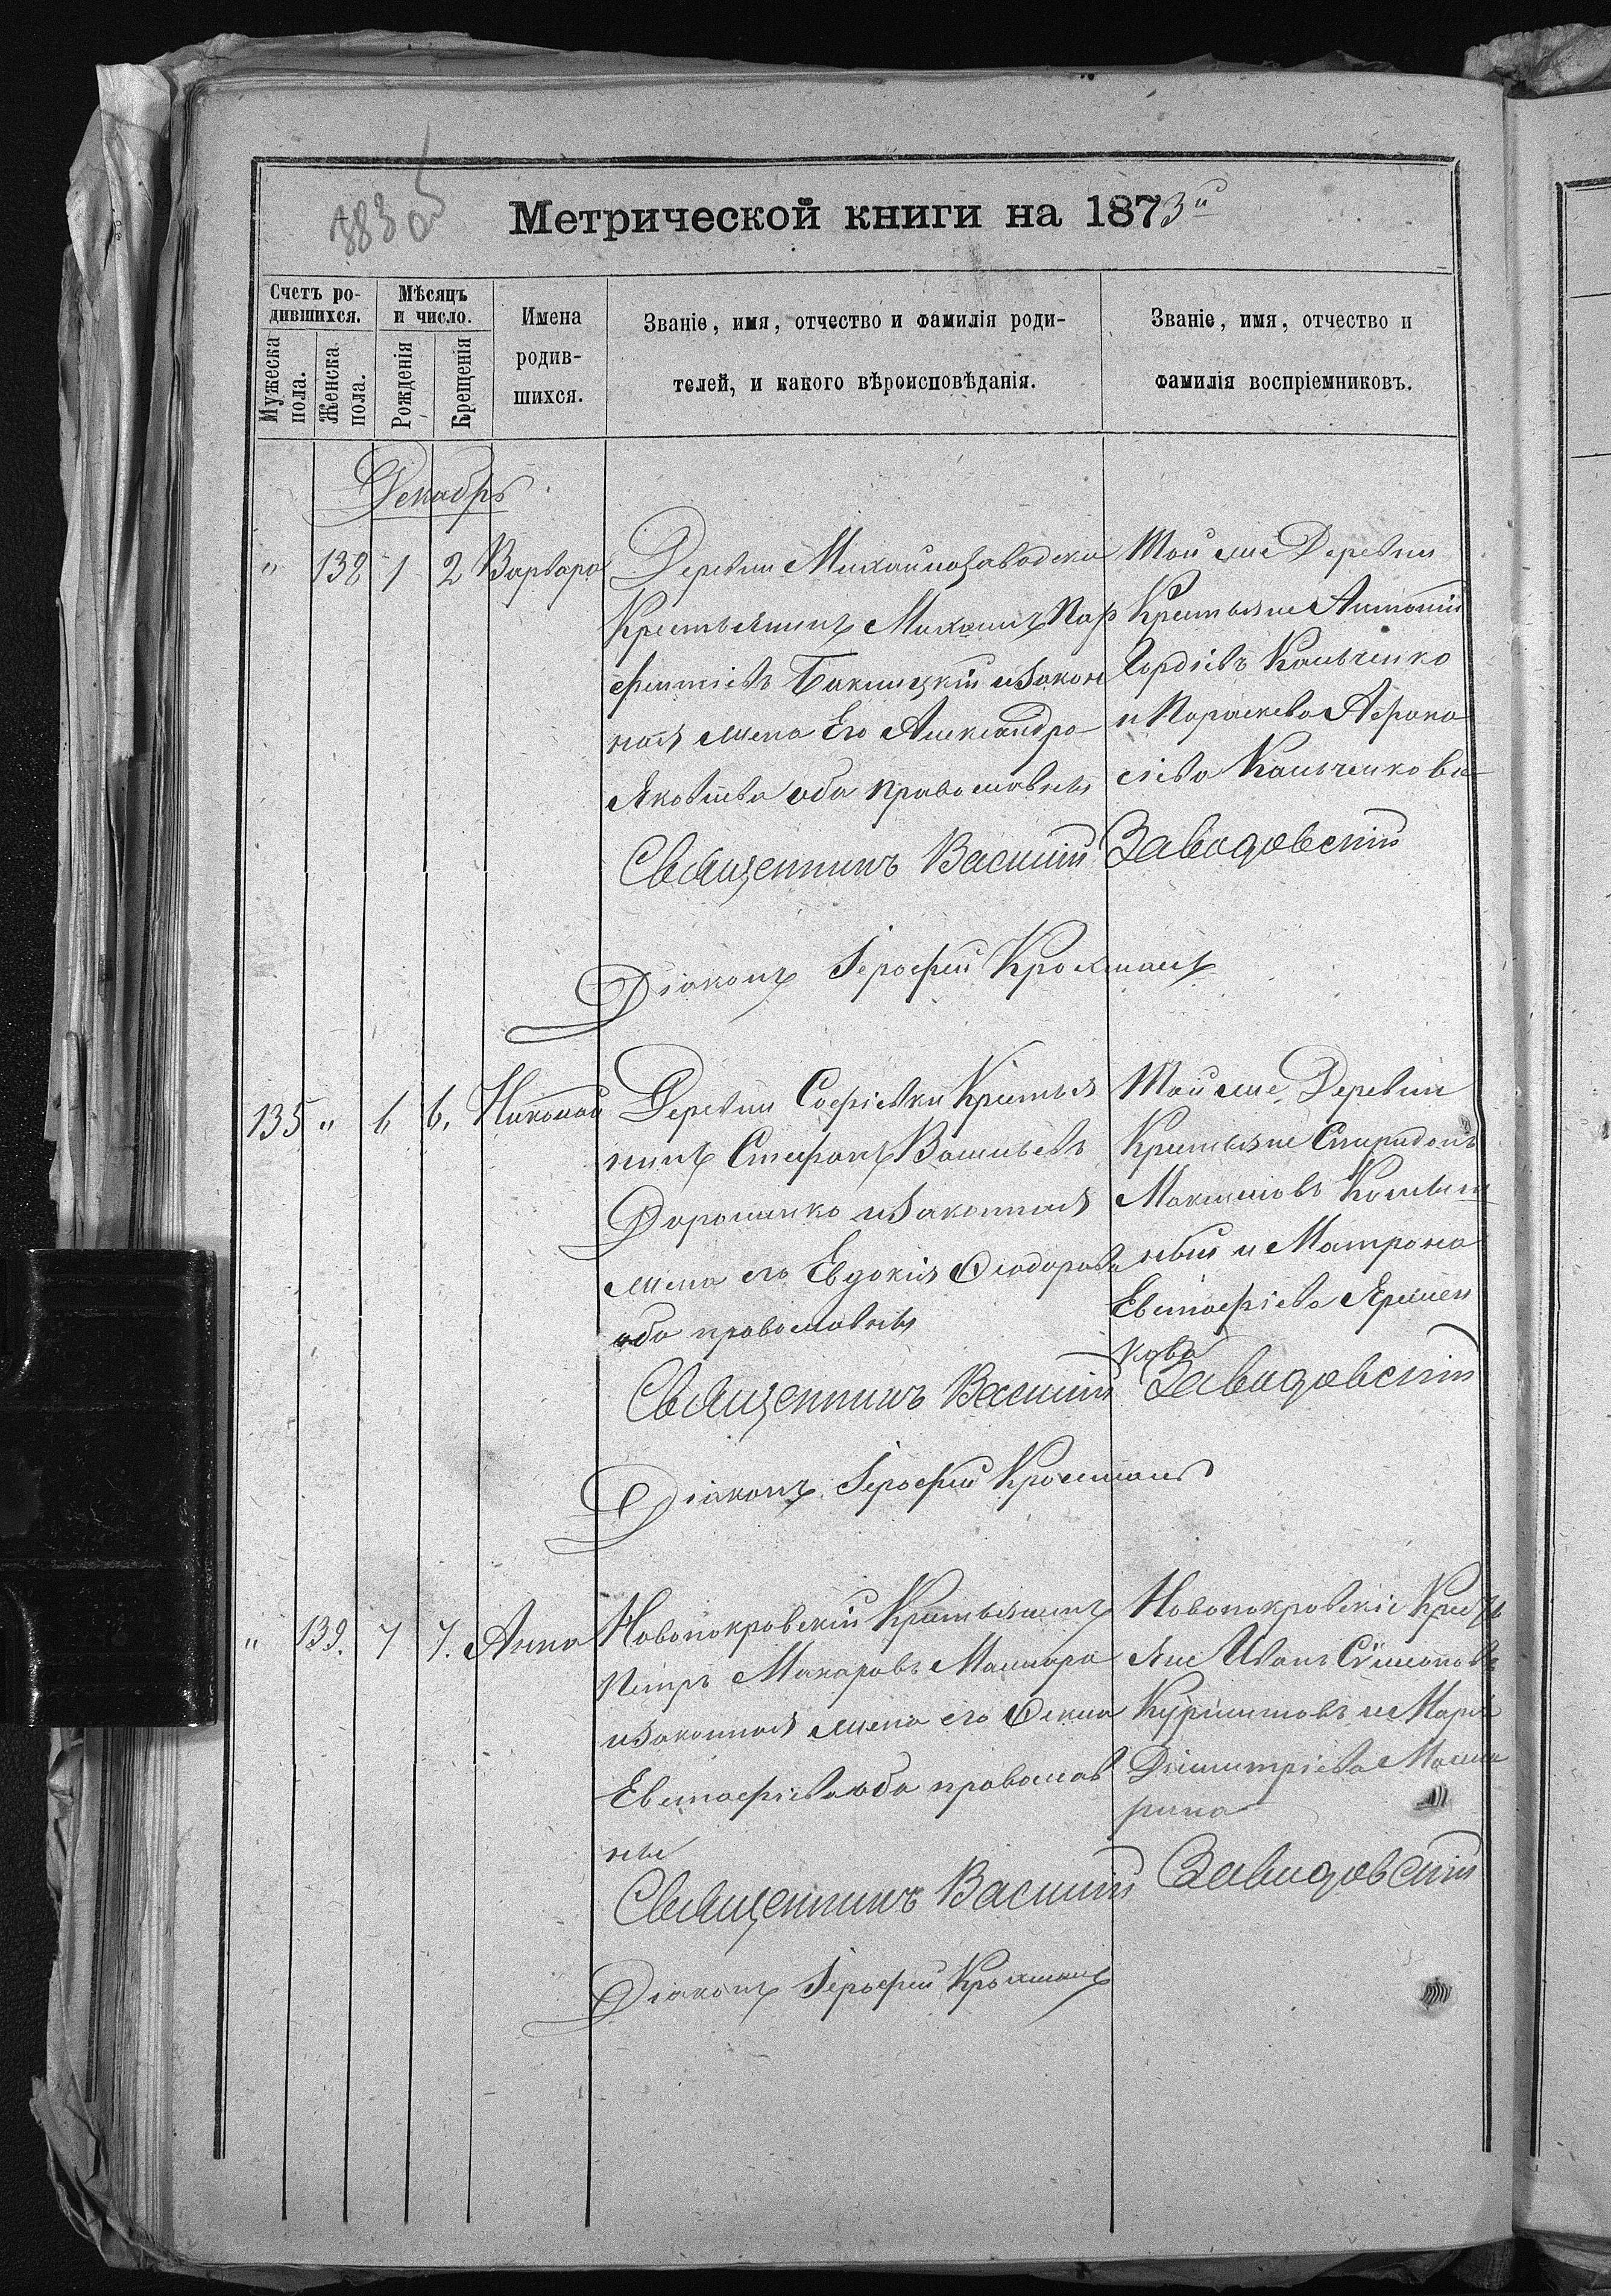 383 об
Метрической книги на 1873й
Счетъ ро-
дившихся.
Мужеска
пола.
Женска
пола.
Мѣсяцъ
и число.
Рожденія
Крещенія
Имена
родив-
шихся.
Званіе, имя, отчество и фамилія роди-
телей, и какого вѣроисповѣданія.
Званіе, имя, отчество и
фамилія воспріемниковъ.
Декабрь.
" 138 1 2 Варвара
Деревни Михайлозаводска
Крестьянинъ Михаилъ Пар
фентіевъ и закон
ная жена Его Александра
Яковлева оба православны
Той же Деревни
Крестьяне Антоній
Гордіевъ Кальченко
и Параскева Афана
сіева Кальченкова
Священникъ Василій Заводовскій
Діаконъ Іерофей Крохмаль
135 " 6 6. Николай
Деревни Софіевки Крестья
нинъ Стефанъ Васильевъ
Дорошенко и законная
жена его Евдокія Феодорова
оба православны
Той же Деревни
Крестьяне Спиридонъ
Максимовъ
ный и Матрона
Евстафіева Яремен
кова
Священникъ Василій Заводовскій
Діаконъ Іерофей Крохмаль
" 139. 7 7. Анна
Новопокровскій Крестьянинъ
Петръ Макаровъ Машара
и законная жена его Фекла
Евстафіева оба православ
ны
Новопокровскіе Крестья
яне Иванъ Сѵмеоновъ
и Марія
Димитріева Маша
рина
Священникъ Василій Заводовскій
Діаконъ Іерофей Крохмаль